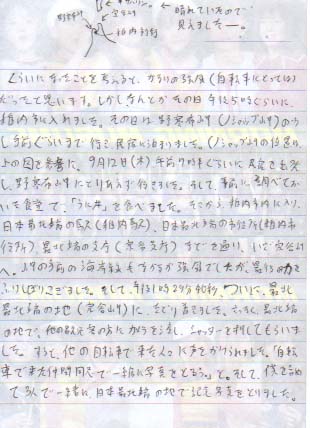 サハリン。
晴れていたので
野寒布岬
宗谷岬
見えましたー。
稚内市街
ぐらいになったことを考えると、かなりの強風(自転車にとっては)
だったと思います。しかしなんとかその日午後5時ぐらいに、
稚内市に入れました。その日は野寒布岬(ノシャップ岬)の少
し手前ぐらいまで行き民宿に泊まりました。(ノシャップ岬の位置は
上の図を参考に。9月12日(木)午前7時半ぐらいに民宿を出発
し、野寒布岬にとりあえず行きました。そして、事前に調べてお
いた食堂で、「うに丼」を食べました。そこから稚内市内に入り、
日本最北端の駅(稚内駅)、日本最北端の市役所(稚内市
役所)、最北端の支庁(宗谷支庁)などを通り、いざ宗谷岬
へ。岬の手前の海岸線もなかなか強風でしたが、最後の力を
ふりしぼりこぎました。そして、午後1時29分40秒、ついに、最北
最北端の地(宗谷岬)に、たどり着きました。さっそく最北端
の地で、他の観光客の方にカメラを渡し、シャッターを押してもらいま
した。すると、他の自転車で来た人に声をかけられました。「自転
車で来た仲間同志で一緒に写真をとろう。」と。そして、僕を含め
て3人で一緒に、日本最北端の地で記念写真をとりました。